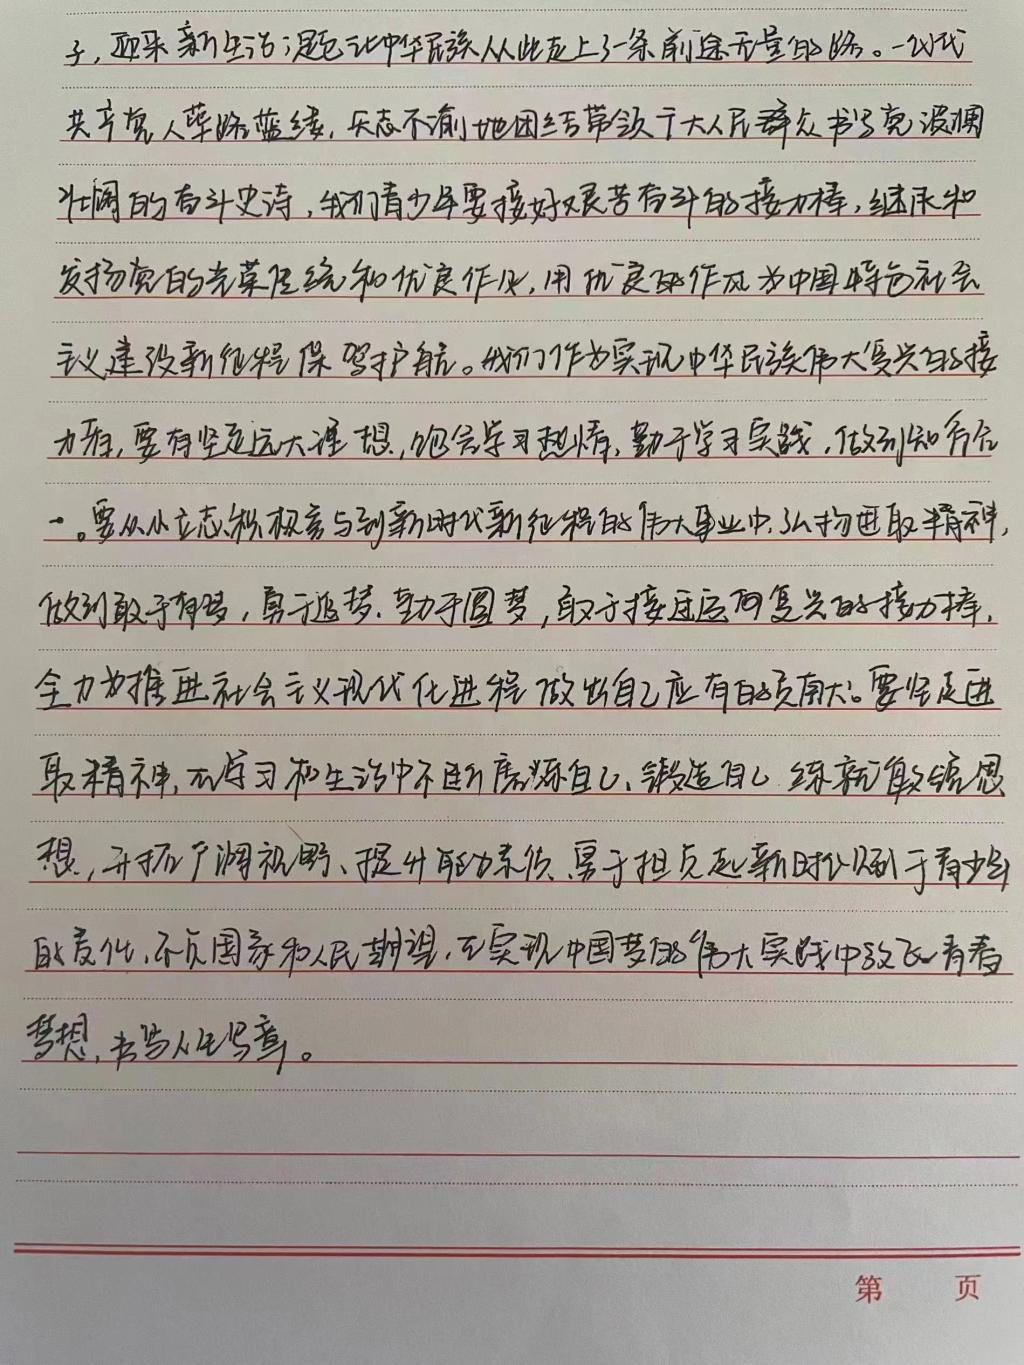 子，迎来新生活；是它让中华民族从此走上了一条前途无量的路。一代代
共产党人筚路蓝缕，矢志不渝地团结带领广大人民群众书写党波澜
壮阔的奋斗史诗，我们青少年要接好艰苦奋斗的接力棒，继承和
发扬党的光荣传统和优良作风，用优良的作风为中国特色社会
主义建设新征程保驾护航。我们作为实现中华民族伟大复兴的接
力者，要有坚定远大理想，饱含学习热情，勤于学习实践，做到知行合
一。要从小立志积极参与到新时代新征程的伟大事业中，弘扬进取精神，
做到敢于有梦，勇于追梦、勤于圆梦，敢于接过民族复兴的接力棒，
全力为推进社会主义现代化进程做出自己应有的贡献。要坚定进
取精神，在学习和生活中不断磨炼自己、锻造自己 练就敏锐思
想，开拓广阔视野、提升能力素质、勇于担负起新时代赋予青少年
的责任，不负国家和人民期望，在实现中国梦的伟大实践中放飞青春
梦想，书写人生华章。
第 页